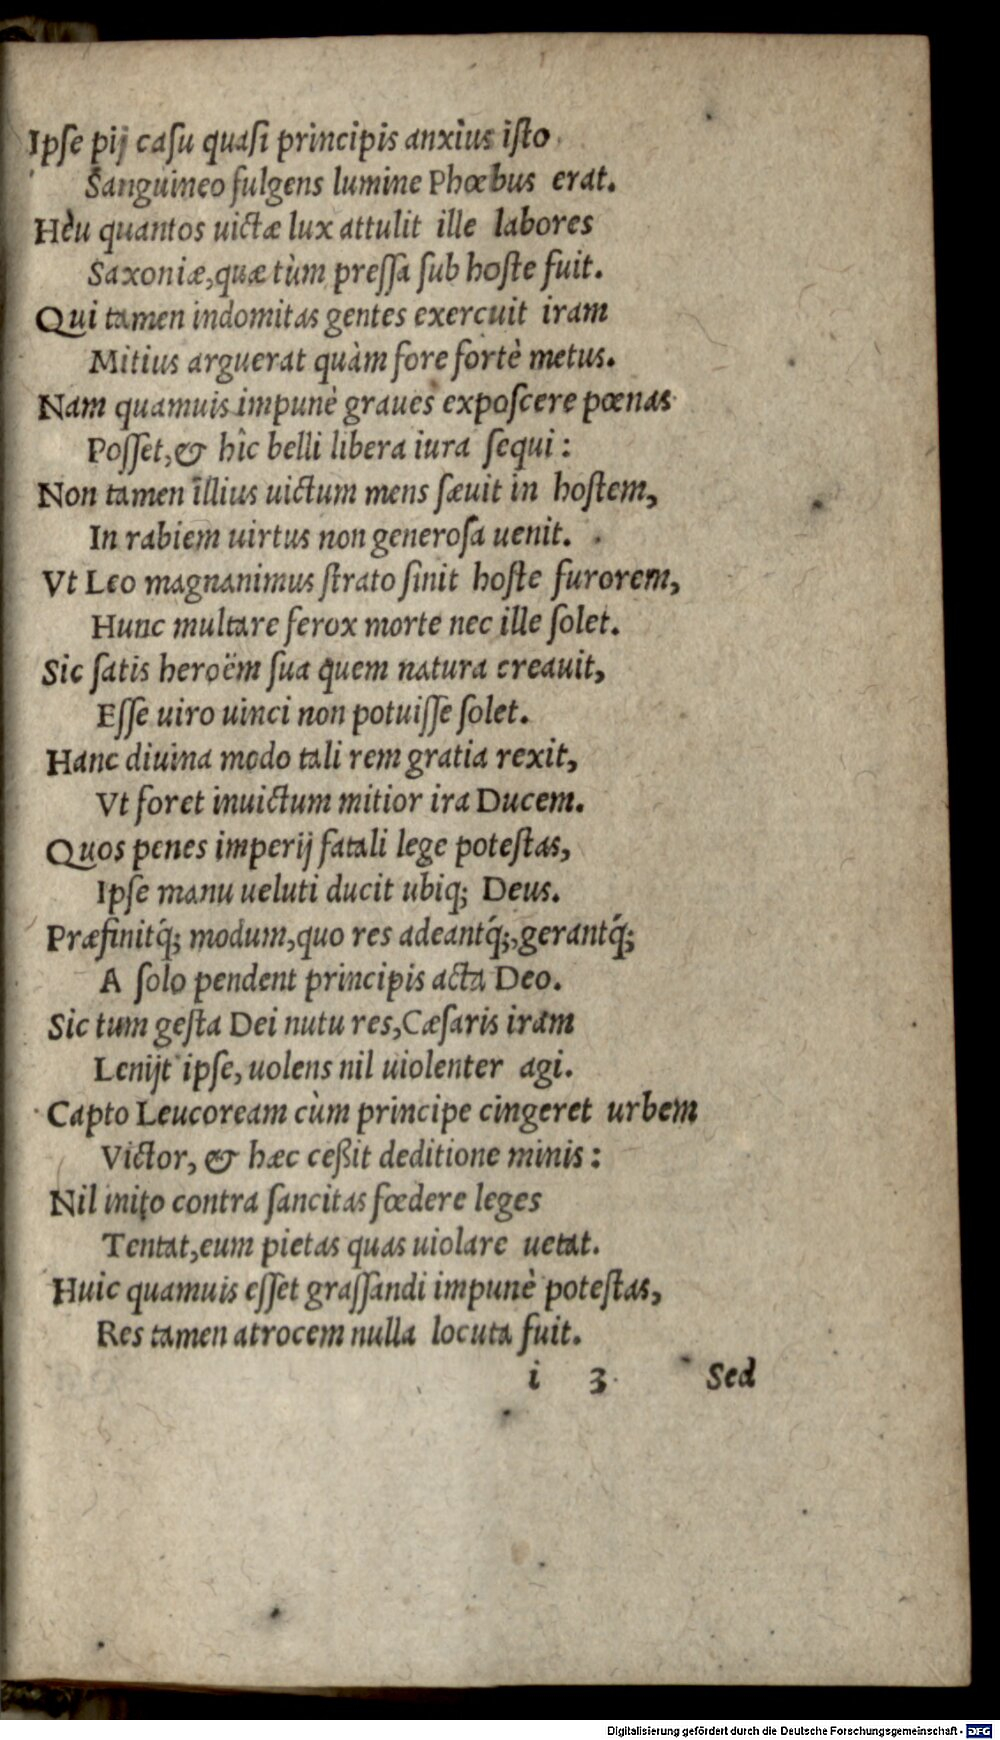 Ipſe pij caſu quaſi principis anxius iſto
Sanguineo fulgens lumine Phœbus erat.
Hèu quantos uictæ lux attulit ille labores
Saxoniæ, quæ tùm preſſa ſub hoſte fuit.
Qui tamen indomitas gentes exercuit iram
Mitius arguerat quàm fore fortè metus.
Nam quamuis impunè graues expoſcere pœnas
Poſſet, & hîc belli libera iura ſequi:
Non tamen illius uictum mens ſæuit in hoſtem,
In rabiem uirtus non generoſa uenit.
Vt Leo magnanimus ſtrato ſinit hoſte furorem,
Hunc multare ferox morte nec ille ſolet.
Sic ſatis heroëm ſua quem natura creauit,
Eſſe uiro uinci non potuiſſe ſolet.
Hanc diuina modo tali rem gratia rexit,
Vt foret inuictum mitior ira Ducem.
Quos penes imperij fatali lege poteſtas,
Ipſe manu ueluti ducit ubiq; Deus.
Præfinitq́; modum, quo res adeantq́;, gerantq́;
A ſolo pendent principis acta Deo.
Sic tum geſta Dei nutu res, Cæſaris iram
Lenijt ipſe, uolens nil uiolenter agi.
Capto Leucoream cùm principe cingeret urbem
Victor, & hæc ceßit deditione minis:
Nil inito contra ſancitas fœdere leges
Tentat, eum pietas quas uiolare uetat.
Huic quamuis eſſet graſſandi impunè poteſtas,
Res tamen atrocem nulla locuta fuit.
i 3 Sed
Digitalisierung gefördert durch die Deutsche Forschungsgemeinschaft - DFG